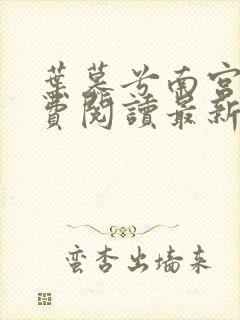 葉慕兮南宮
費閱讀最新
蠻杏出墻來